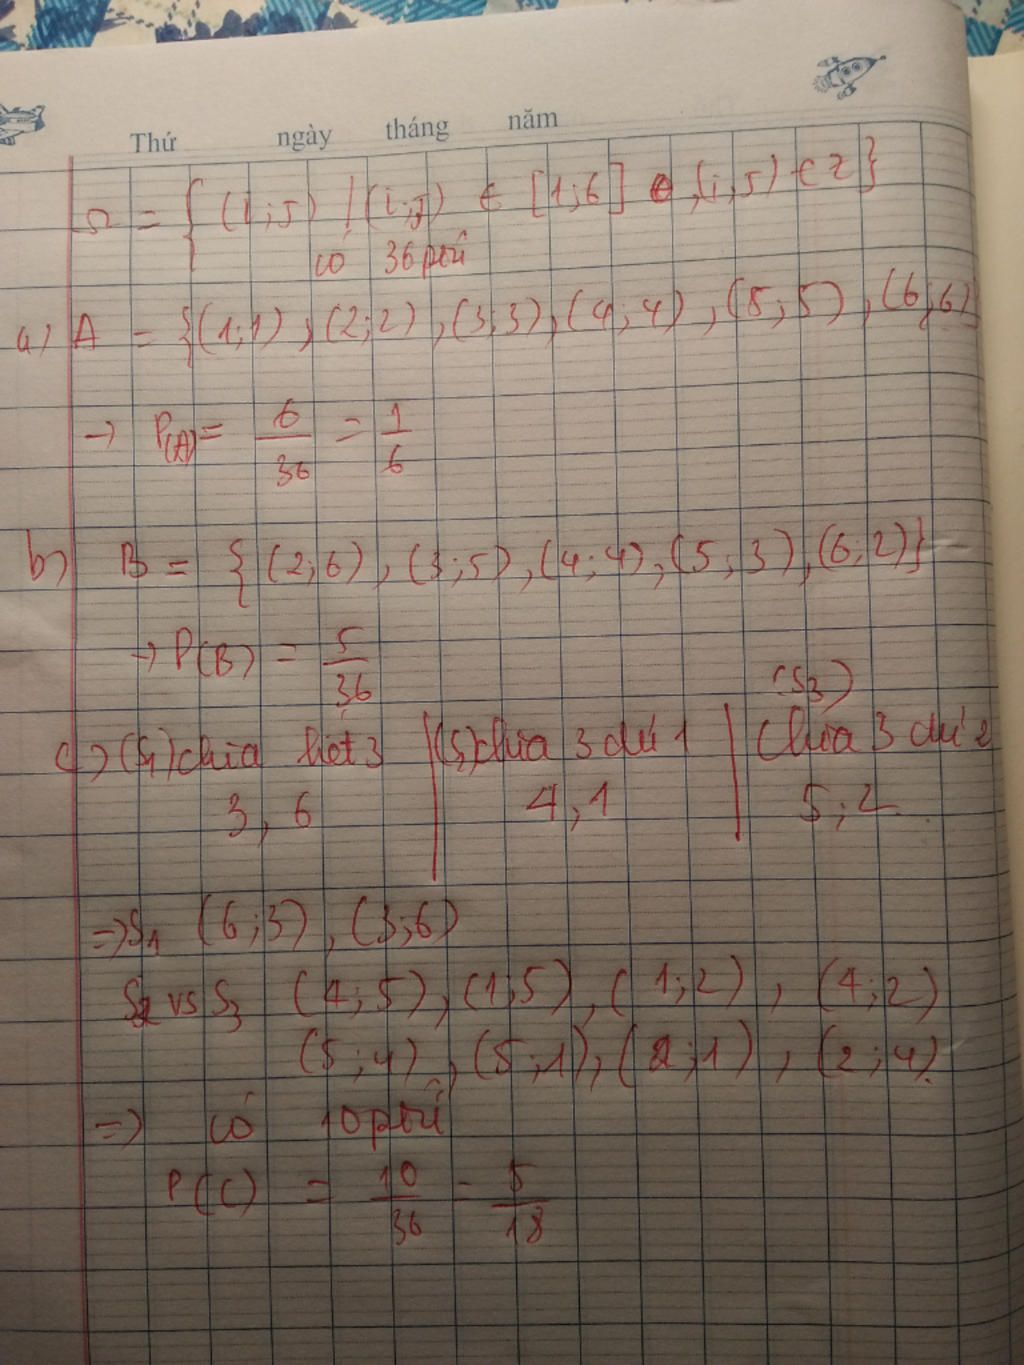 Thứ ngày tháng năm
Ω = { (i;j) | (i;j) ∈ [1;6] , (i,j) ∈ Z }
có 36 ptử
a) A = {(1;1), (2;2), (3;3), (4;4), (5;5), (6;6)
→ P(A) = 6/36 = 1/6
b) B = { (2;6), (3;5), (4;4), (5;3), (6;2)}
→ P(B) = 5/36
(S3)
c) (S1) chia hết 3 | (S2) chia 3 dư 1 | Chia 3 dư 2
3, 6 4,1 5;2
=> S1 (6;3), (3;6)
S2 vs S3 (4;5), (1;5), (1;2), (4;2)
(5;4), (5;1), (2;1), (2;4).
=> có 10 ptử
P(C) = 10/36 = 5/18